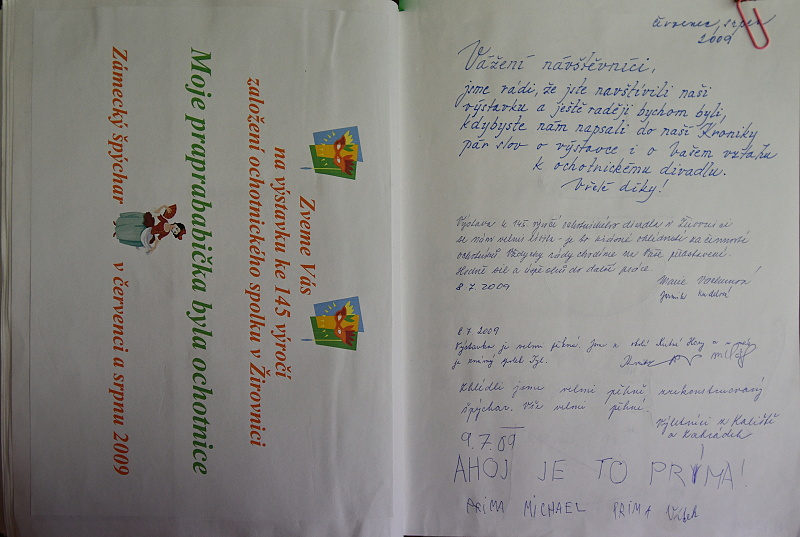 Zveme Vás
na výstavku ke 145 výročí
založení ochotnického spolku v Žirovnici
Moje praprababička byla ochotnice
Zámecký špýchar v červenci a srpnu 2009
červenec, srpen
2009
Vážení návštěvníci,
jsme rádi, že jste navštívili naši
výstavku a ještě raději bychom byli,
kdybyste nám napsali do naší Kroniky
pár slov o výstavce i o Vašem vztahu
k ochotnickému divadlu.
Vřelé díky!
Výstava k 145. výročí ochotnického divadla v Žirovnici
se nám velmi líbila - je to krásné ohlédnutí za činností
ochotníků. Vždycky rády chodíme na Vaše představení.
Hodně sil a úspěchů do další práce.
8.7.2009
Marie
8.7.2009
Výstavka je velmi pěkná. Jsme z okolí Kutné Hory
je známý spolek Tyl.
Shlédli jsme velmi pěkně zrekonstruovaný
špýchar. Vše velmi pěkné.
Výletníci z Kališť
a Zahrádek
9.7.09
AHOJ JE TO PRÍMA!
PRIMA MICHAEL PRIMA Vítek